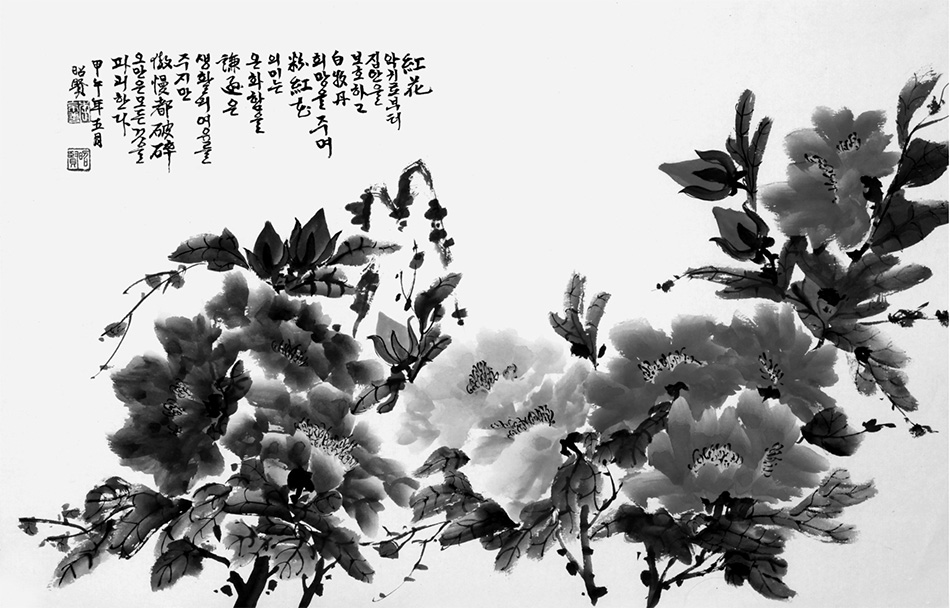 紅花
악귀로부터
집안을
보호하고
白牧丹
희망을 주며
粉紅色
의미는
온화함을
謙遜은
생활의 여유를
주지만
傲慢都破碎
오만은 모든 것을
파괴한다
甲午年 五月
昭賢